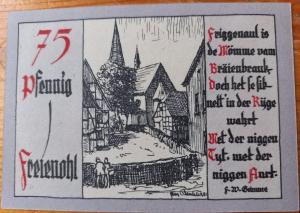 75
Pfennig
Freienohl
Friggenaut is
de Mömme vam
Bräienbrauk,
Doch ket se sik
nett in der Rüge
wahrt
Met der niggen
Tyt, met der
niggen Aurt.
F. W. Grimme